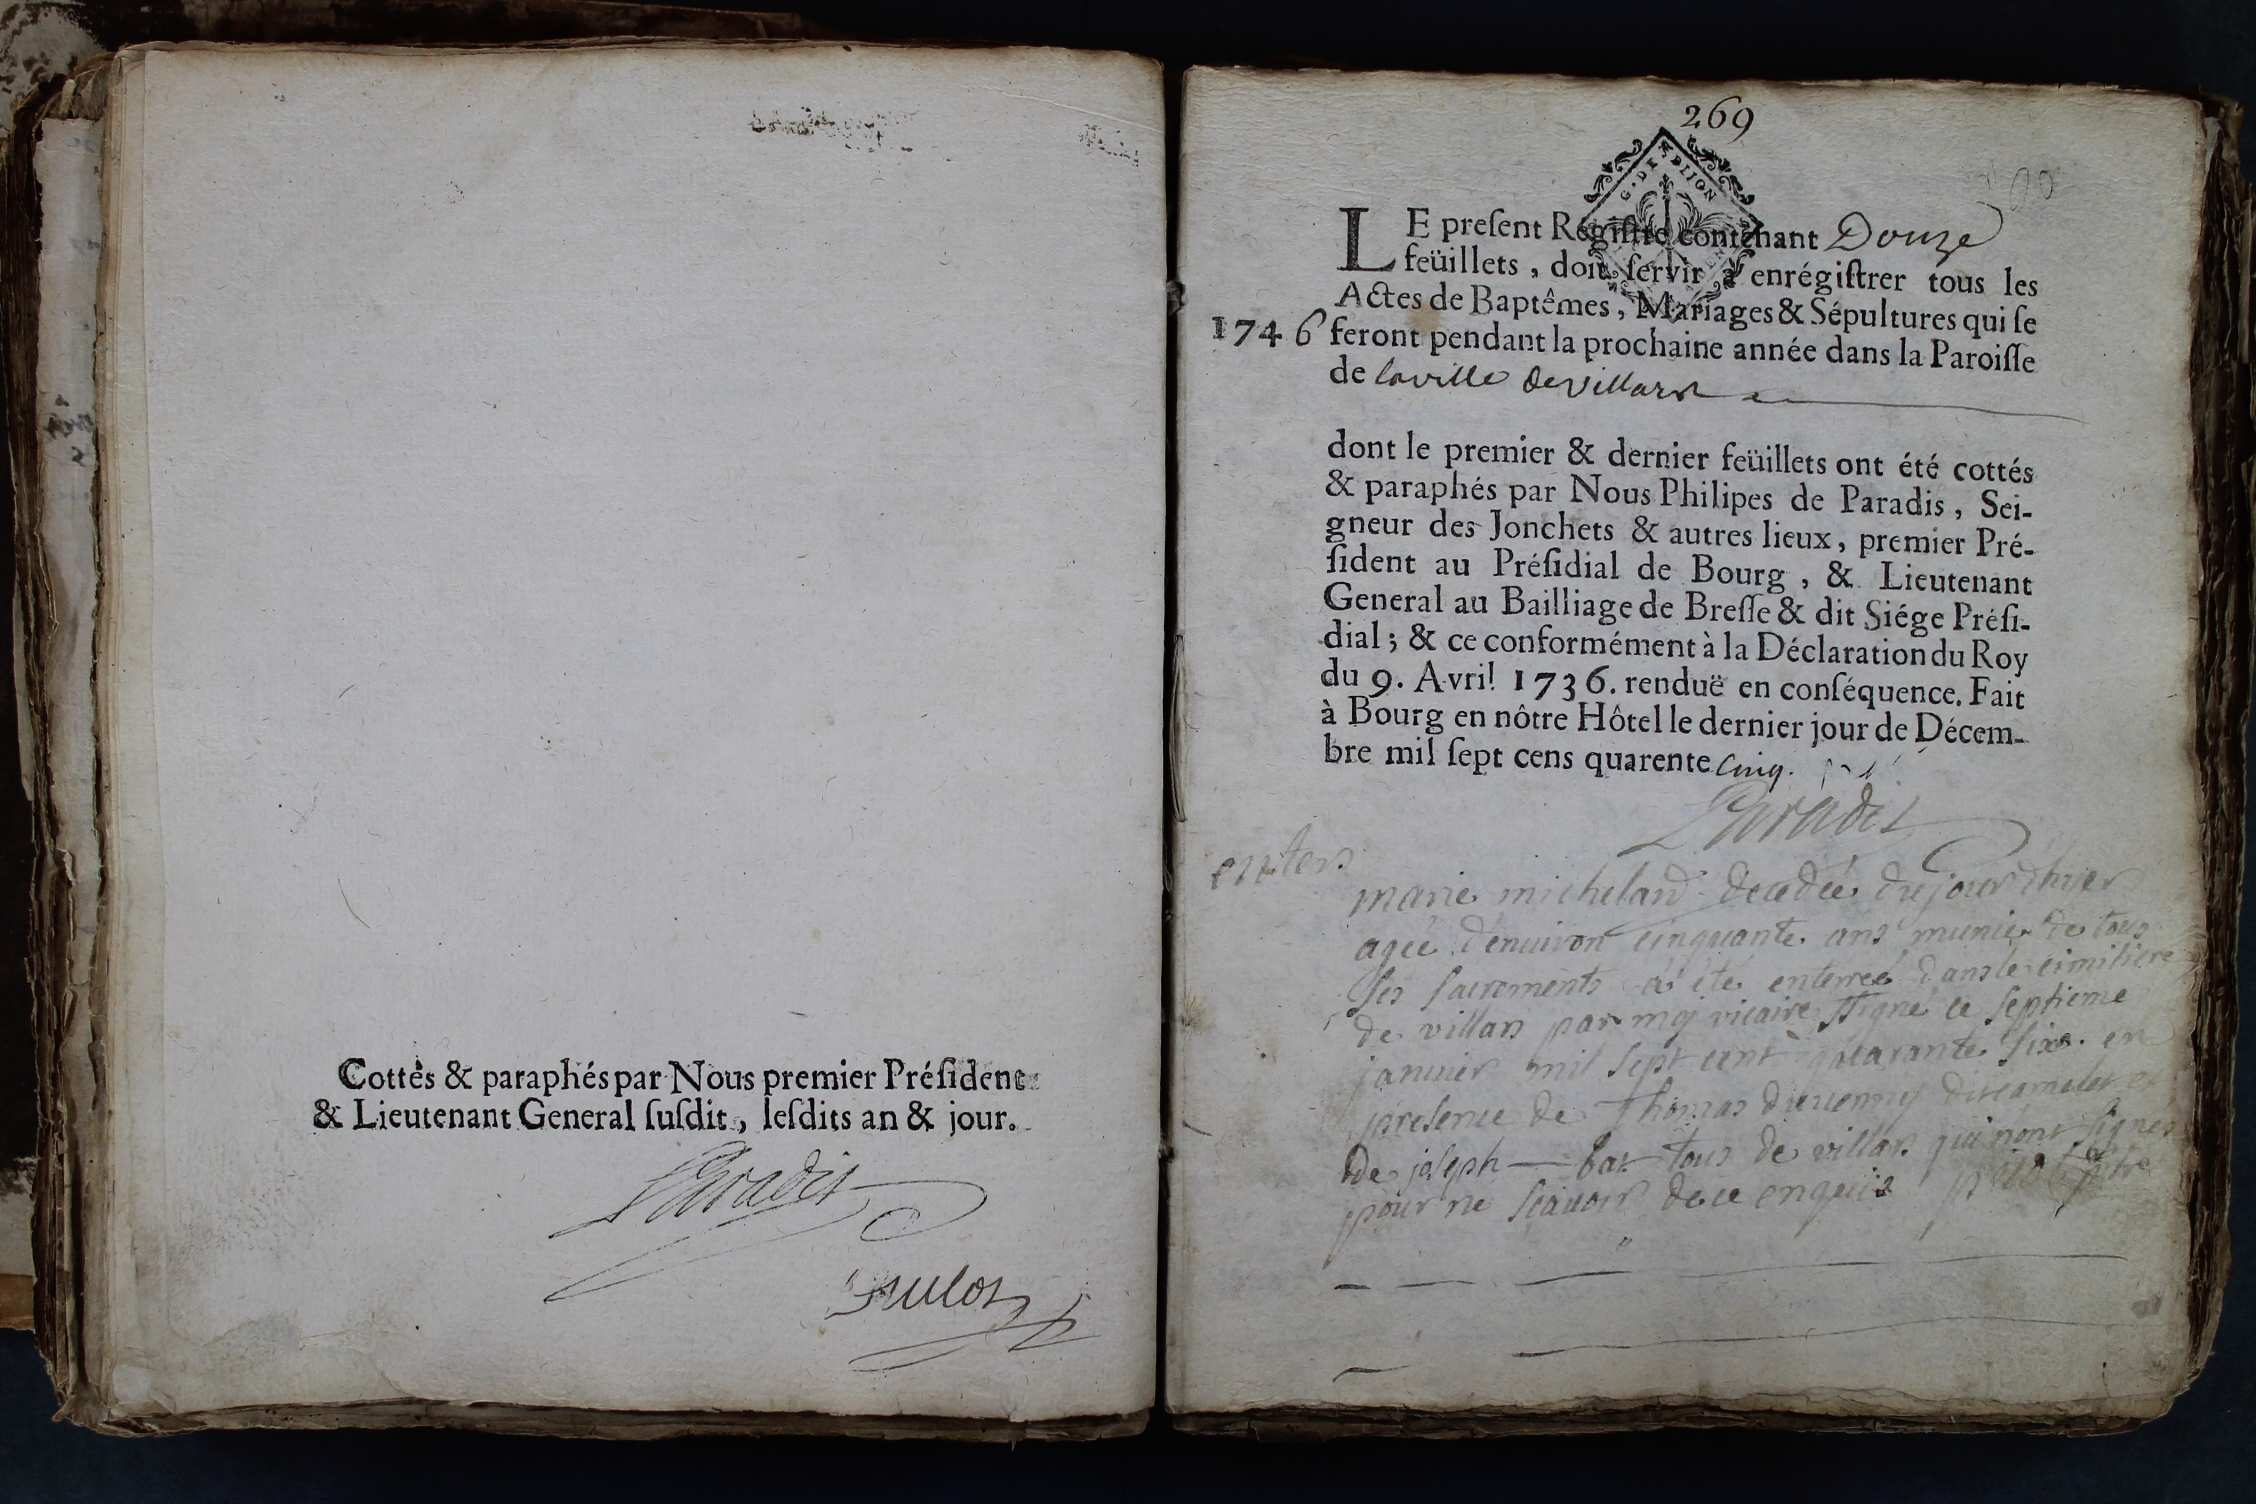 Cottés & paraphés par Nous premier Préſident
& Lieutenant General ſuſdit, leſdits an & jour.
Paradis
269
G. DE DIJON
LE preſent Régiſtre contenant Douze
feüillets, doit ſervir à enrégiſtrer tous les
Actes de Baptêmes, Mariages & Sépultures qui ſe
1746 feront pendant la prochaine année dans la Paroiſſe
de la ville de villars
dont le premier & dernier feüillets ont été cottés
& paraphés par Nous Philipes de Paradis, Sei-
gneur des Jonchets & autres lieux, premier Pré-
ſident au Préſidial de Bourg, & Lieutenant
General au Bailliage de Breſſe & dit Siége Préſi-
dial; & ce conformément à la Déclaration du Roy
du 9. Avril 1736. renduë en conſéquence. Fait
à Bourg en nôtre Hôtel le dernier jour de Décem-
bre mil ſept cens quarente cinq.
Paradis
marie michelard decedée du jour d'hyer
agée d'enuiron cinquante ans munie de tous
ses sacrements a été enterreé dans le cimitiere
de villars par moy vicaire ssigné ce septieme
januier mil sept cent quarante six en
presence de Thomas
de joseph — tous de villars qui n'ont signés
pour ne scauoir de ce enquis